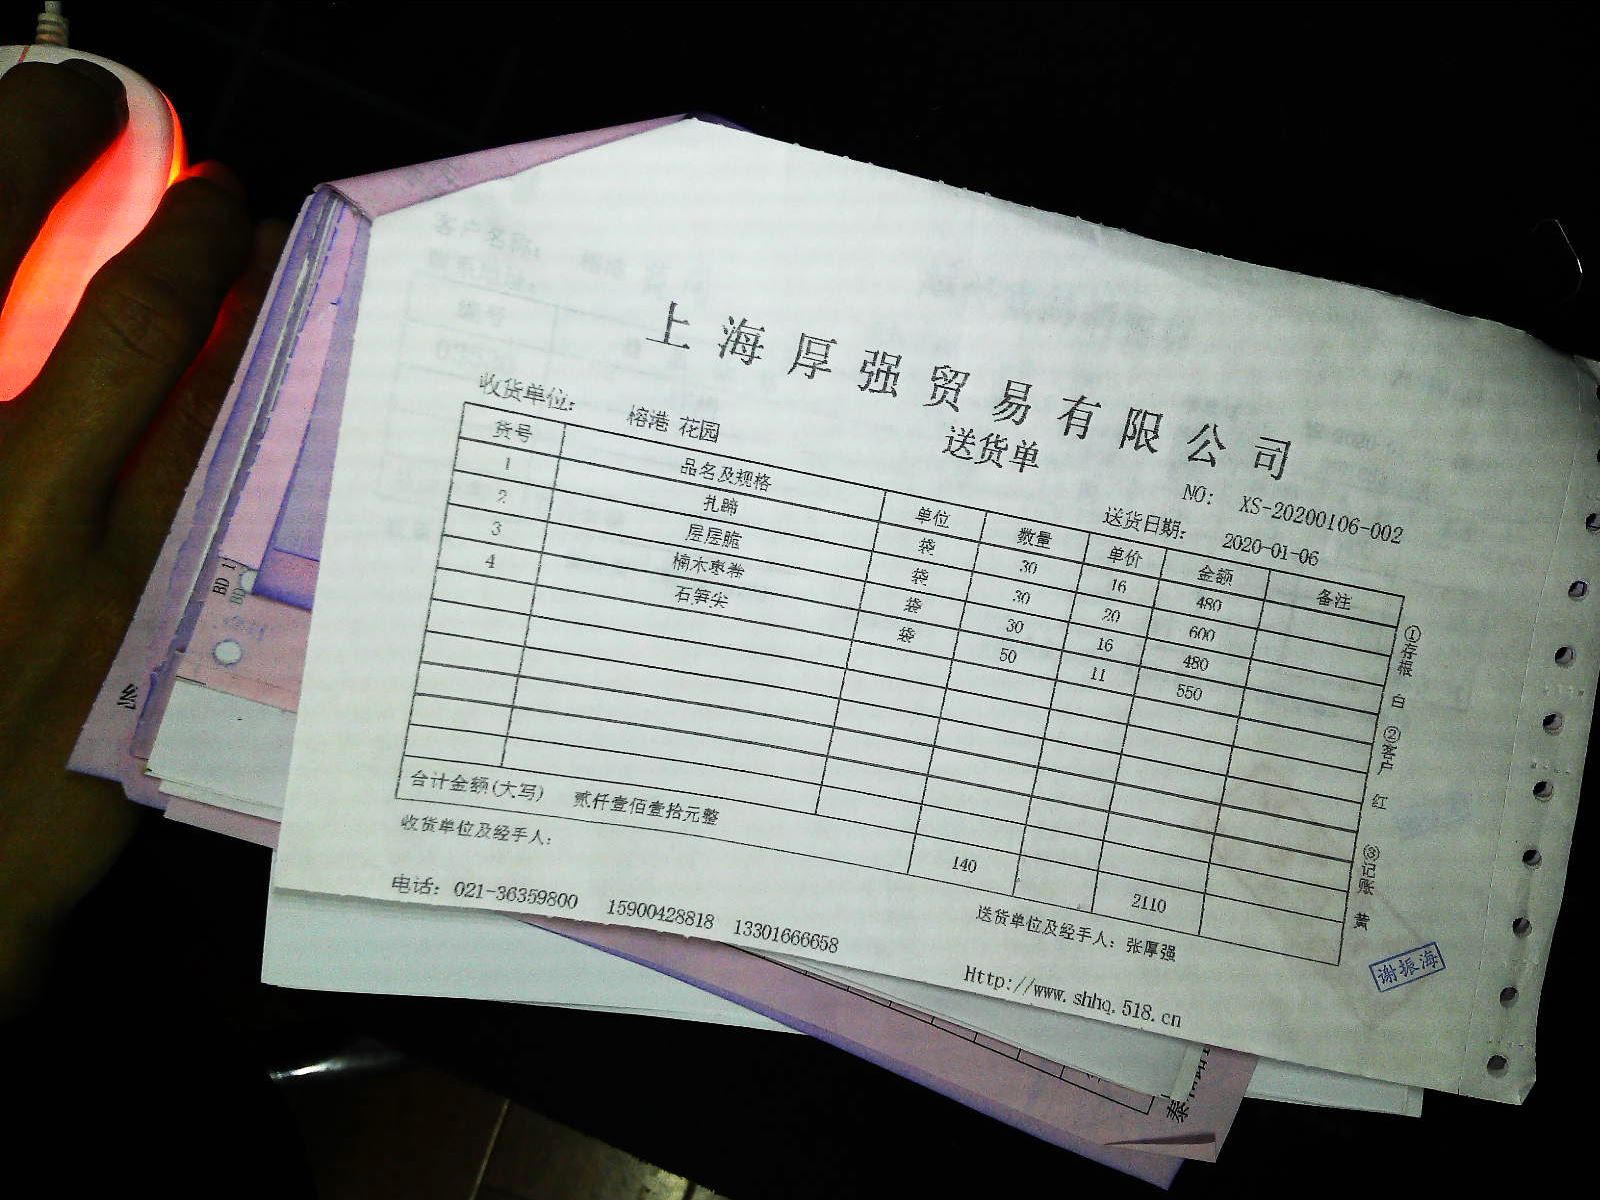 上海厚强贸易有限公司
送货单
NO: XS-20200106-002
收货单位: 榕港 花园
送货日期: 2020-01-06
货号 品名及规格 单位 数量 单价 金额 备注
1 扎蹄 袋 30 16 480
2 层层脆 袋 30 20 600
3 楠木枣卷 袋 30 16 480
4 石笋尖 袋 50 11 550
合计金额(大写) 贰仟壹佰壹拾元整 140 2110
收货单位及经手人:
送货单位及经手人: 张厚强
电话: 021-36359800 15900428818 13301666658
Http://www.shhq.518.cn
①存根 白 ②客户 红 ③记账 黄
谢振海
客户名称:
编号
BD 1